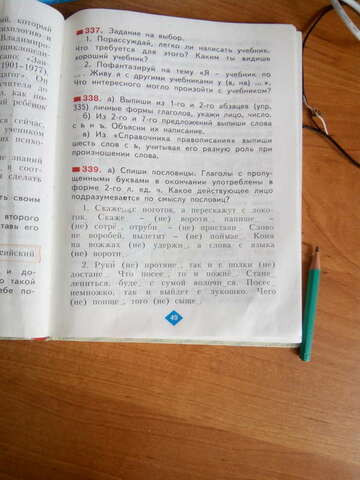 который
ихологию в
Владимиро-
нциклопеди-
ка; «Зан-
1901—1977),
дагог». Он
учителя до
л, как по-
й ребёнок
сейчас
учеником
психо-
знаний
в соот-
сделать
ть своим
второго
тавь его
сийский
и до-
такой
ебе по-
337. Задание на выбор.
1. Порассуждай, легко ли написать учебник.
Что требуется для этого? Каким ты видишь
хороший учебник?
2. Пофантазируй на тему «Я — учебник по
... . Живу я с другими учебниками у (в, на) ... ».
Что интересного могло произойти с учебником?
338. а) Выпиши из 1-го и 2-го абзацев (упр.
335) личные формы глаголов, укажи лицо, число.
б) Из 2-го и 7-го предложений выпиши слова
с ь и ъ. Объясни их написание.
в) Из «Справочника правописания» выпиши
шесть слов с ь, учитывая его разную роль при
произношении слова.
339. а) Спиши пословицы. Глаголы с пропу-
щенными буквами в окончании употреблены в
форме 2-го л. ед. ч. Какое действующее лицо
подразумевается по смыслу пословиц?
1. Скаже_ с ноготок, а перескажут с локо-
ток. Скаже_ – (не) вороти_, напише_ –
(не) сотрё_, отруби_ – (не) пристави_. Слово
не воробей, вылетит – (не) поймае_. Коня
на вожжах (не) удержи_, а слова с языка
(не) вороти_.
2. Руки (не) протяне_, так и с полки (не)
достане_. Что посее_, то и пожнё_. Стане_
лениться, буде_ с сумой волочиться. Посее_
немножко, так и выйдет с лукошко. Чего
(не) поище_, того (не) сыще_.
49